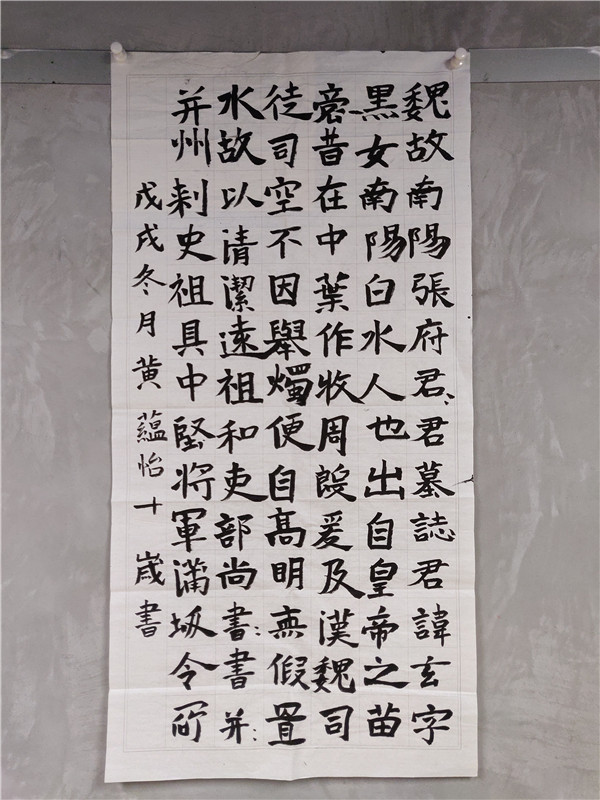 魏故南陽張府君、君墓誌君諱玄字
黑女南陽白水人也出自皇帝之苗
裔昔在中葉作牧周殷爰及漢魏司
徒司空不因舉燭便自髙明無假置
水故以清潔遠祖和吏部尚書:書并:
并州刺史祖具中堅將軍蒲坂令所
戊戌冬月黄蘊怡十歲書